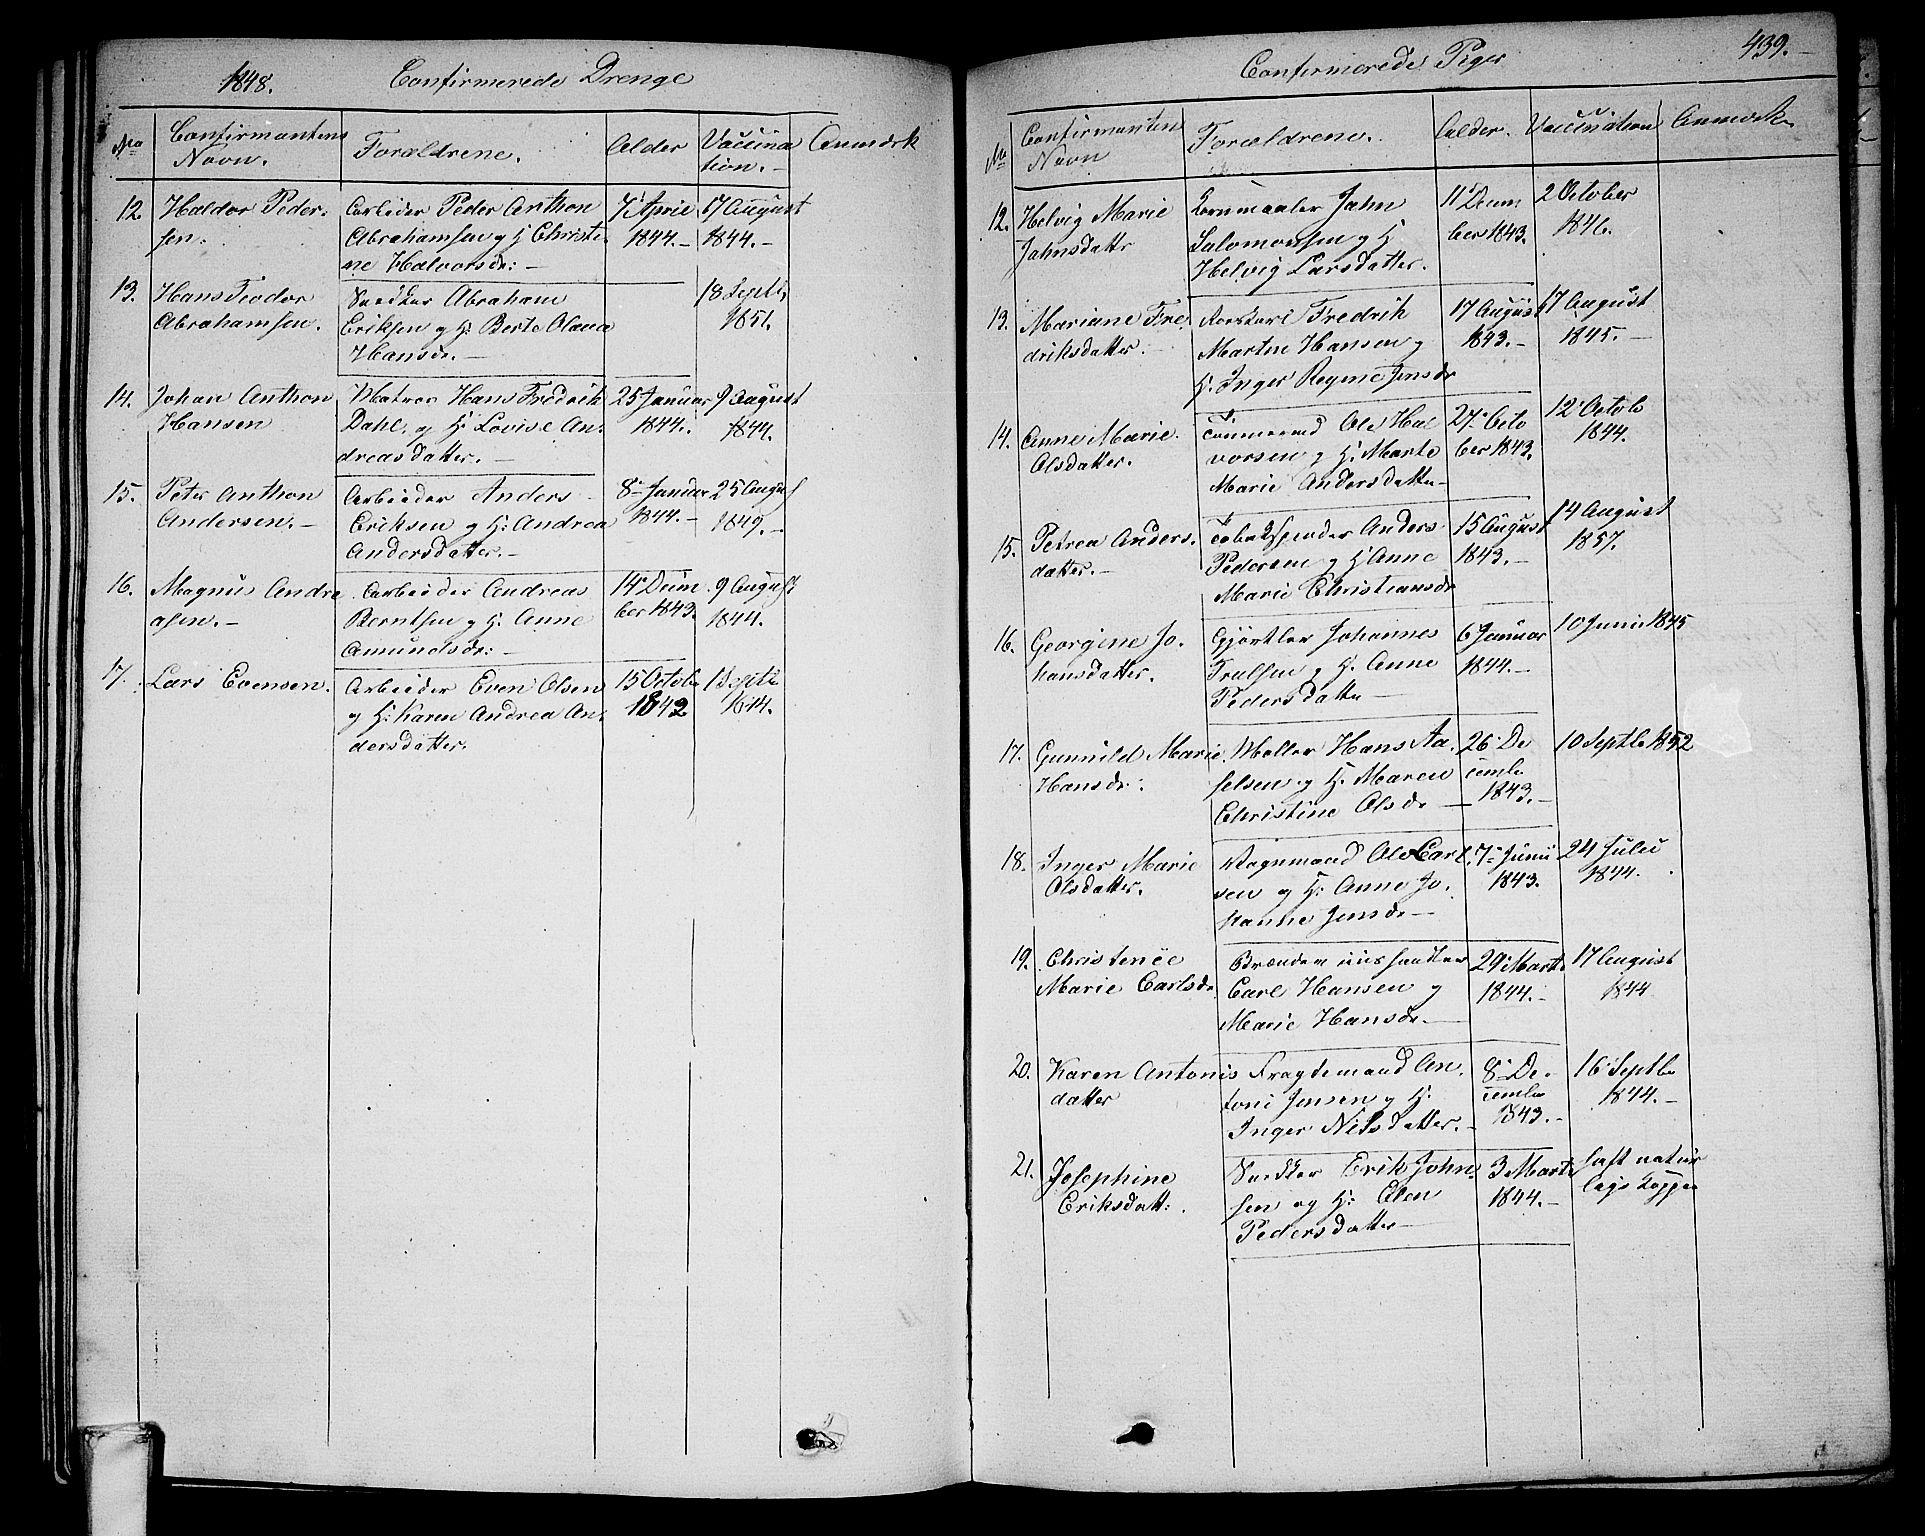 1848. Confirmerede Drenge
No
Confirmantens
Navn.
Forældrene.
Alder
Vaccina
tion.-
Anmærk
12. Haldor Peder-
sen.
Arbeider Peder Anthon
Abrahamsen og H. Christi-
ne Halvorsdr: -
7 April
1844.-
17 August
1844.-
13. Hans Teodor
Abrahamsen.
Snedker Abraham
Eriksen og H: Berte Olava
Hansdr. -
18 Septb
1851.
14. Johan Anthon
Hansen
Matros Hans Fredrik
Dahl. og H: Lovise An-
dreasdatter. -
25 Januar
1844.
9 August
1844.
15. Peter Anthon
Andersen. -
Arbeider Anders
Eriksen og H: Andrea
Andersdatter. -
8 Januar
1844.-
25 August
1849.-
16. Magnus Andre
asen. -
Arbeider Andreas
Berntsen og H. Anne
Amundsdr: -
14 Decem
ber 1843.
9 August
1844.
17. Lars Evensen.
Arbeider Even Olsen
og H: Karen Andrea An-
dersdatter.
15 Octobr
1842
1844.
Confirmerede Piger 439.
No
Confirmanten
Navn
Forældrene.
Alder.
Vaccination
Anmærk
12. Helvig Marie
Jahnsdattr
Kornmaaler Jahn
Salomonsen og H
Helvig Larsdatter.
11 Decem
ber 1843.
2 October
1846.
13. Mariane Fre
driksdatter. -
Fredrik
Martin Hansen og
H. Inger Regine Jensdr
17 August
1843.-
17 August
1845.-
14. Anne Marie
Olsdatter.
Tømmermd Ole Hal
vorsen og H: Marte
Marie Andersdatter-
27 Octo
ber 1843.
12 Octob
1844.
15. Petrea Anders-
datter. -
Tobakspinder Anders
Pedersen og H Anne
Marie Christiansdr
15 August
1843.-
14 August
1857.
16. Georgine Jo-
hansdatter.
Gjørtler Johannes
Trulsen og H. Anne
Pedersdatter -
6 Januar
1844.-
10 Juni 1845
17. Gunnild Marie
Hansdr:
Møller Hans Aa-
felsen og H. Maren
Christine Olsdr -
26 De
cembr
1843.-
10 Septbr 1852
18. Inger Marie
Olsdatter.
Vognmand Ole Carl-
sen og H: Anne Jo-
hanne Jensdr -
7 Junii
1843.
24 Julii
1844.
19. Christense
Marie Carlsdr
Carl Hansen og
Marie Hansdr. -
29 Marts
1844.-
17 August
1844
20. Karen Antonis
datter
Fragtemand An-
toni Jensen og H.
Inger Nilsdatter. -
8 De-
cembr
1843.-
16 Septbr
1844.-
21. Josephine
Eriksdatt:
Snedker Erik John-
sen og H: Elen
Pedersdatter -
3 Marts
1844.-
haft natur
lige Kopper